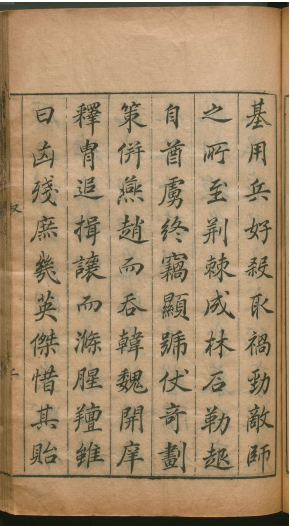 基用兵好殺取禍勁敵師
之所至荆棘成林石勒趍
自酋虜終竊顯號仗奇劃
策併燕趙而吞韓魏開庠
釋冑追揖讓而滌腥羶雖
曰凶殘庶幾英傑惜其貽
二